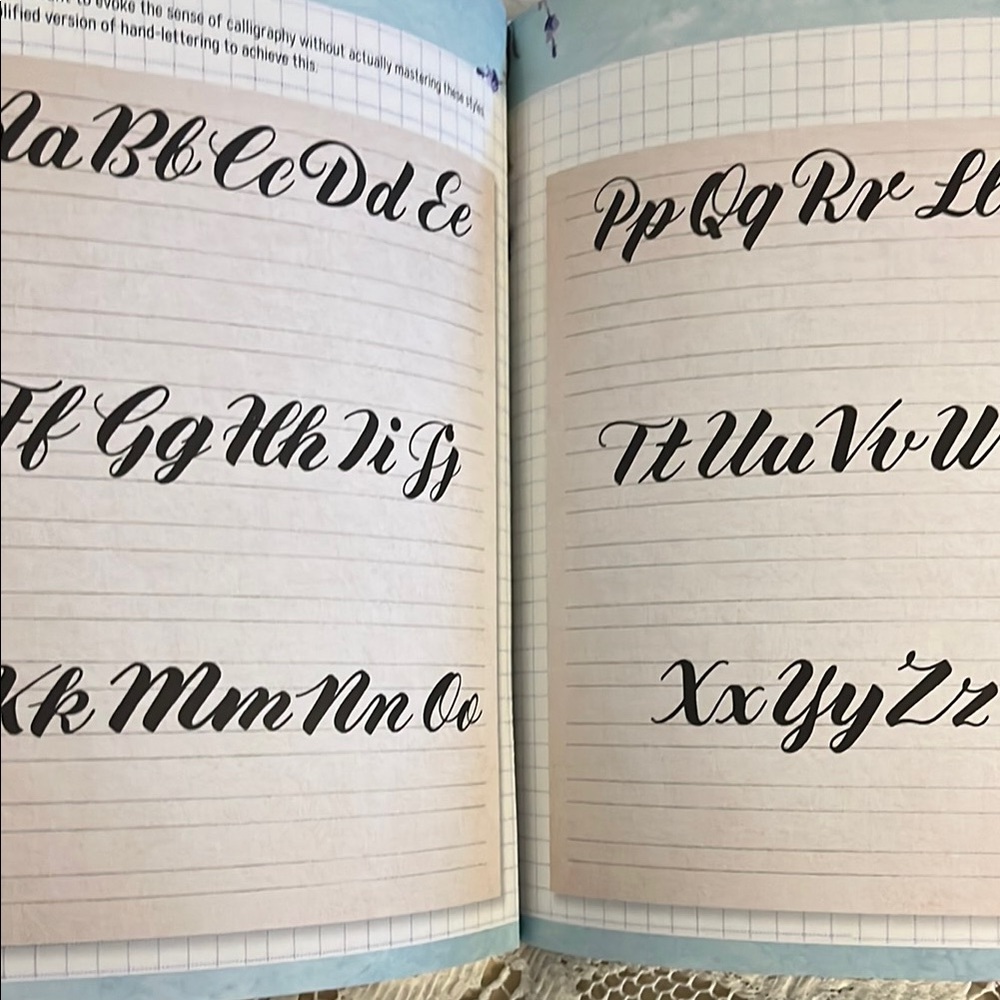 to evoke the sense of calligraphy without actually mastering these styles
version of hand-lettering to achieve this.
Aa Bb Cc Dd Ee
Ff Gg Hh Ii Jj
Kk Mm Nn Oo
Pp Qq Rr Ll
Tt Uu Vv W
Xx Yy Zz